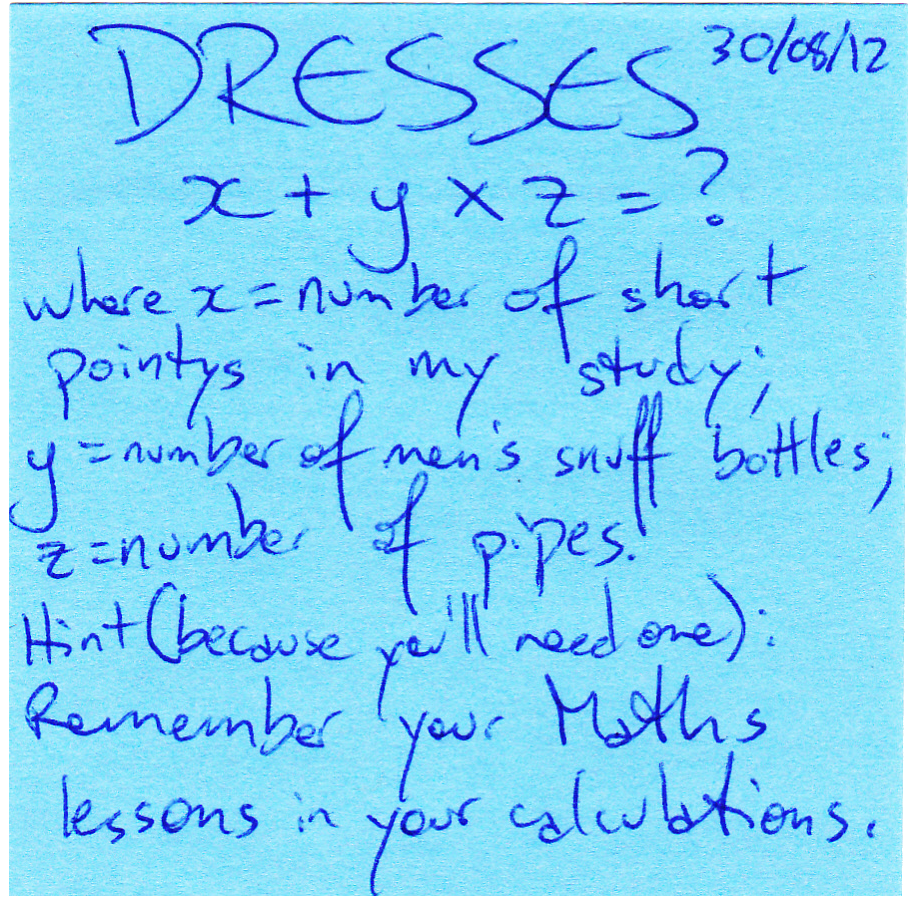 DRESSES 30/08/12
x + y × z = ?
where x = number of short
pointys in my study;
y = number of men's snuff bottles;
z = number of pipes.
Hint (because you'll need one):
Remember your Maths
lessons in your calculations.